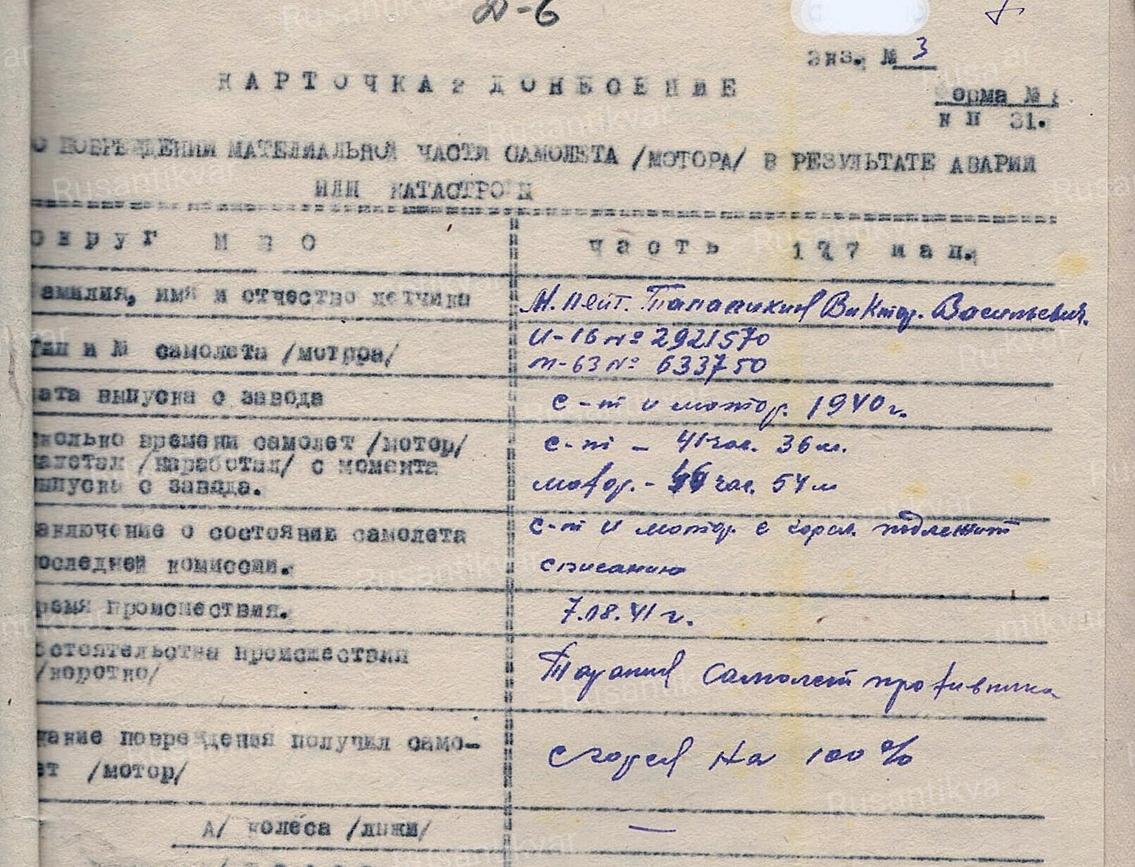 Д-6
экз. № 3
КАРТОЧКА - ДОНЕСЕНИЕ
Форма №
ИП 31.
О ПОВРЕЖДЕНИИ МАТЕРИАЛЬНОЙ ЧАСТИ САМОЛЕТА /МОТОРА/ В РЕЗУЛЬТАТЕ АВАРИИ
ИЛИ КАТАСТРОФЫ
округ МВО
часть 177 иап.
фамилия, имя и отчество летчика
М. лейт. Талалихин Виктор. Васильевич.
Тип и № самолета /мотора/
И-16 № 2921570
м-63 № 633750
дата выпуска с завода
с-т и мотор. 1940 г.
сколько времени самолет /мотор/
налетал /наработал/ с момента
выпуска с завода.
с-т - 41 час. 36 м.
мотор. - час. 54 м
заключение о состоянии самолета
последней комиссии.
с-т и мотор сгорел подлежит
списанию
время происшествия.
7.08.41 г.
обстоятельства происшествия
/коротко/
Таранил самолет противника
какие повреждения получил само-
лет /мотор/
сгорел на 100%
А/ колеса /лыжи/
—
Rusantikvar